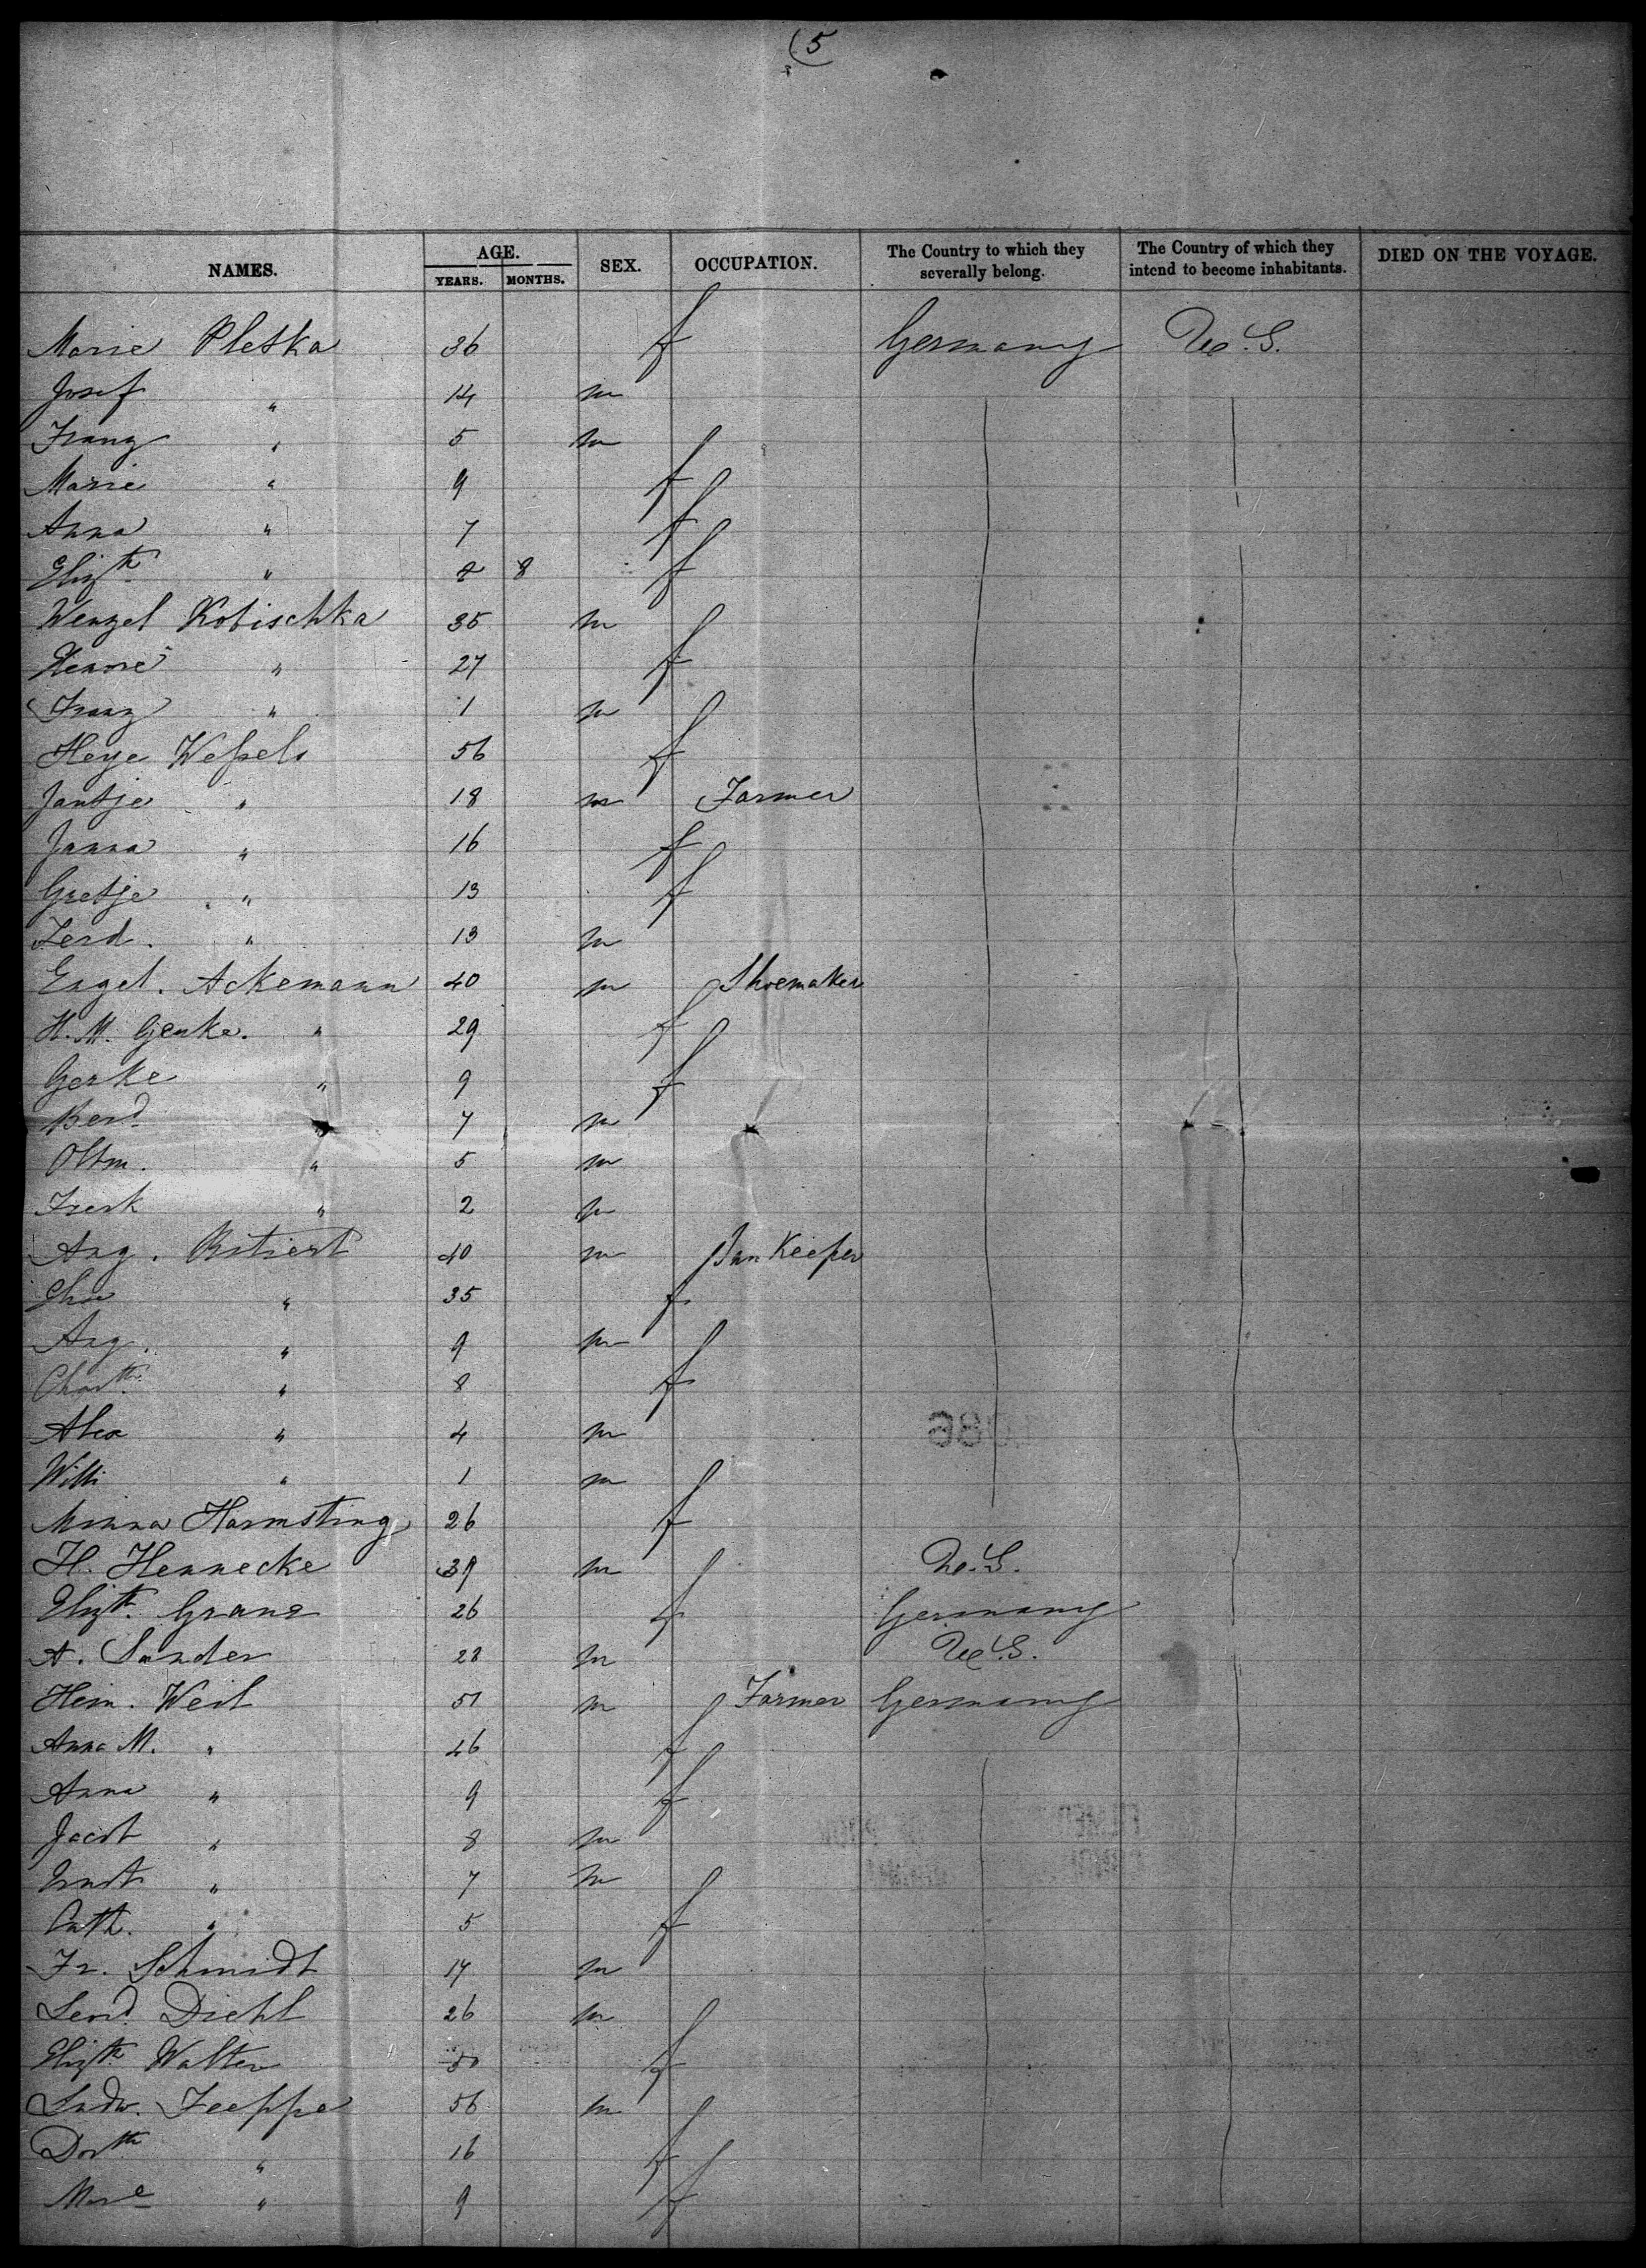 (5
NAMES. AGE. YEARS. MONTHS. SEX. OCCUPATION. The Country to which they severally belong. The Country of which they intend to become inhabitants. DIED ON THE VOYAGE.
Marie Pletka 36 f Germany U.S.
Josef " 14 m
Franz " 5 m
Marie " 9 f
Anna " 7 f
Elizth " 8 f
Wenzel Kobischka 35 m
" 27 f
Franz " 1 m
Heye Weßels 56 f
Jantje " 18 m Farmer
Janna " 16 f
Gretje " 13 f
Ferd. " 13 m
Engel. Ackemann 40 m Shoemaker
H. M. Gerke. " 29 f
Gerke " 9 f
Berd " 7 m
Oltm. " 5 m
Frerk " 2 m
Aug. 40 m Inn Keeper
" 35 f
Aug. " 9 m
Charth " 8 f
Alex " 4 m
Willi " 1 m
Minna Harmsting 26 f
H. Hennecke 39 m U.S.
Elizth Grane 26 f Germany
A. Sander 28 m U.S.
Hein. Weil 51 m Farmer Germany
Anna M. " 46 f
Anna " 9 f
Jacob " 8 m
Ernst " 7 m
Cath. " 5 f
Fr. Schmidt 17 m
Leond Diehl 26 m
Elizth Walter 50 f
Ludw. Jeeppe 56 m
Dorth " 16 f
Mare " 9 f